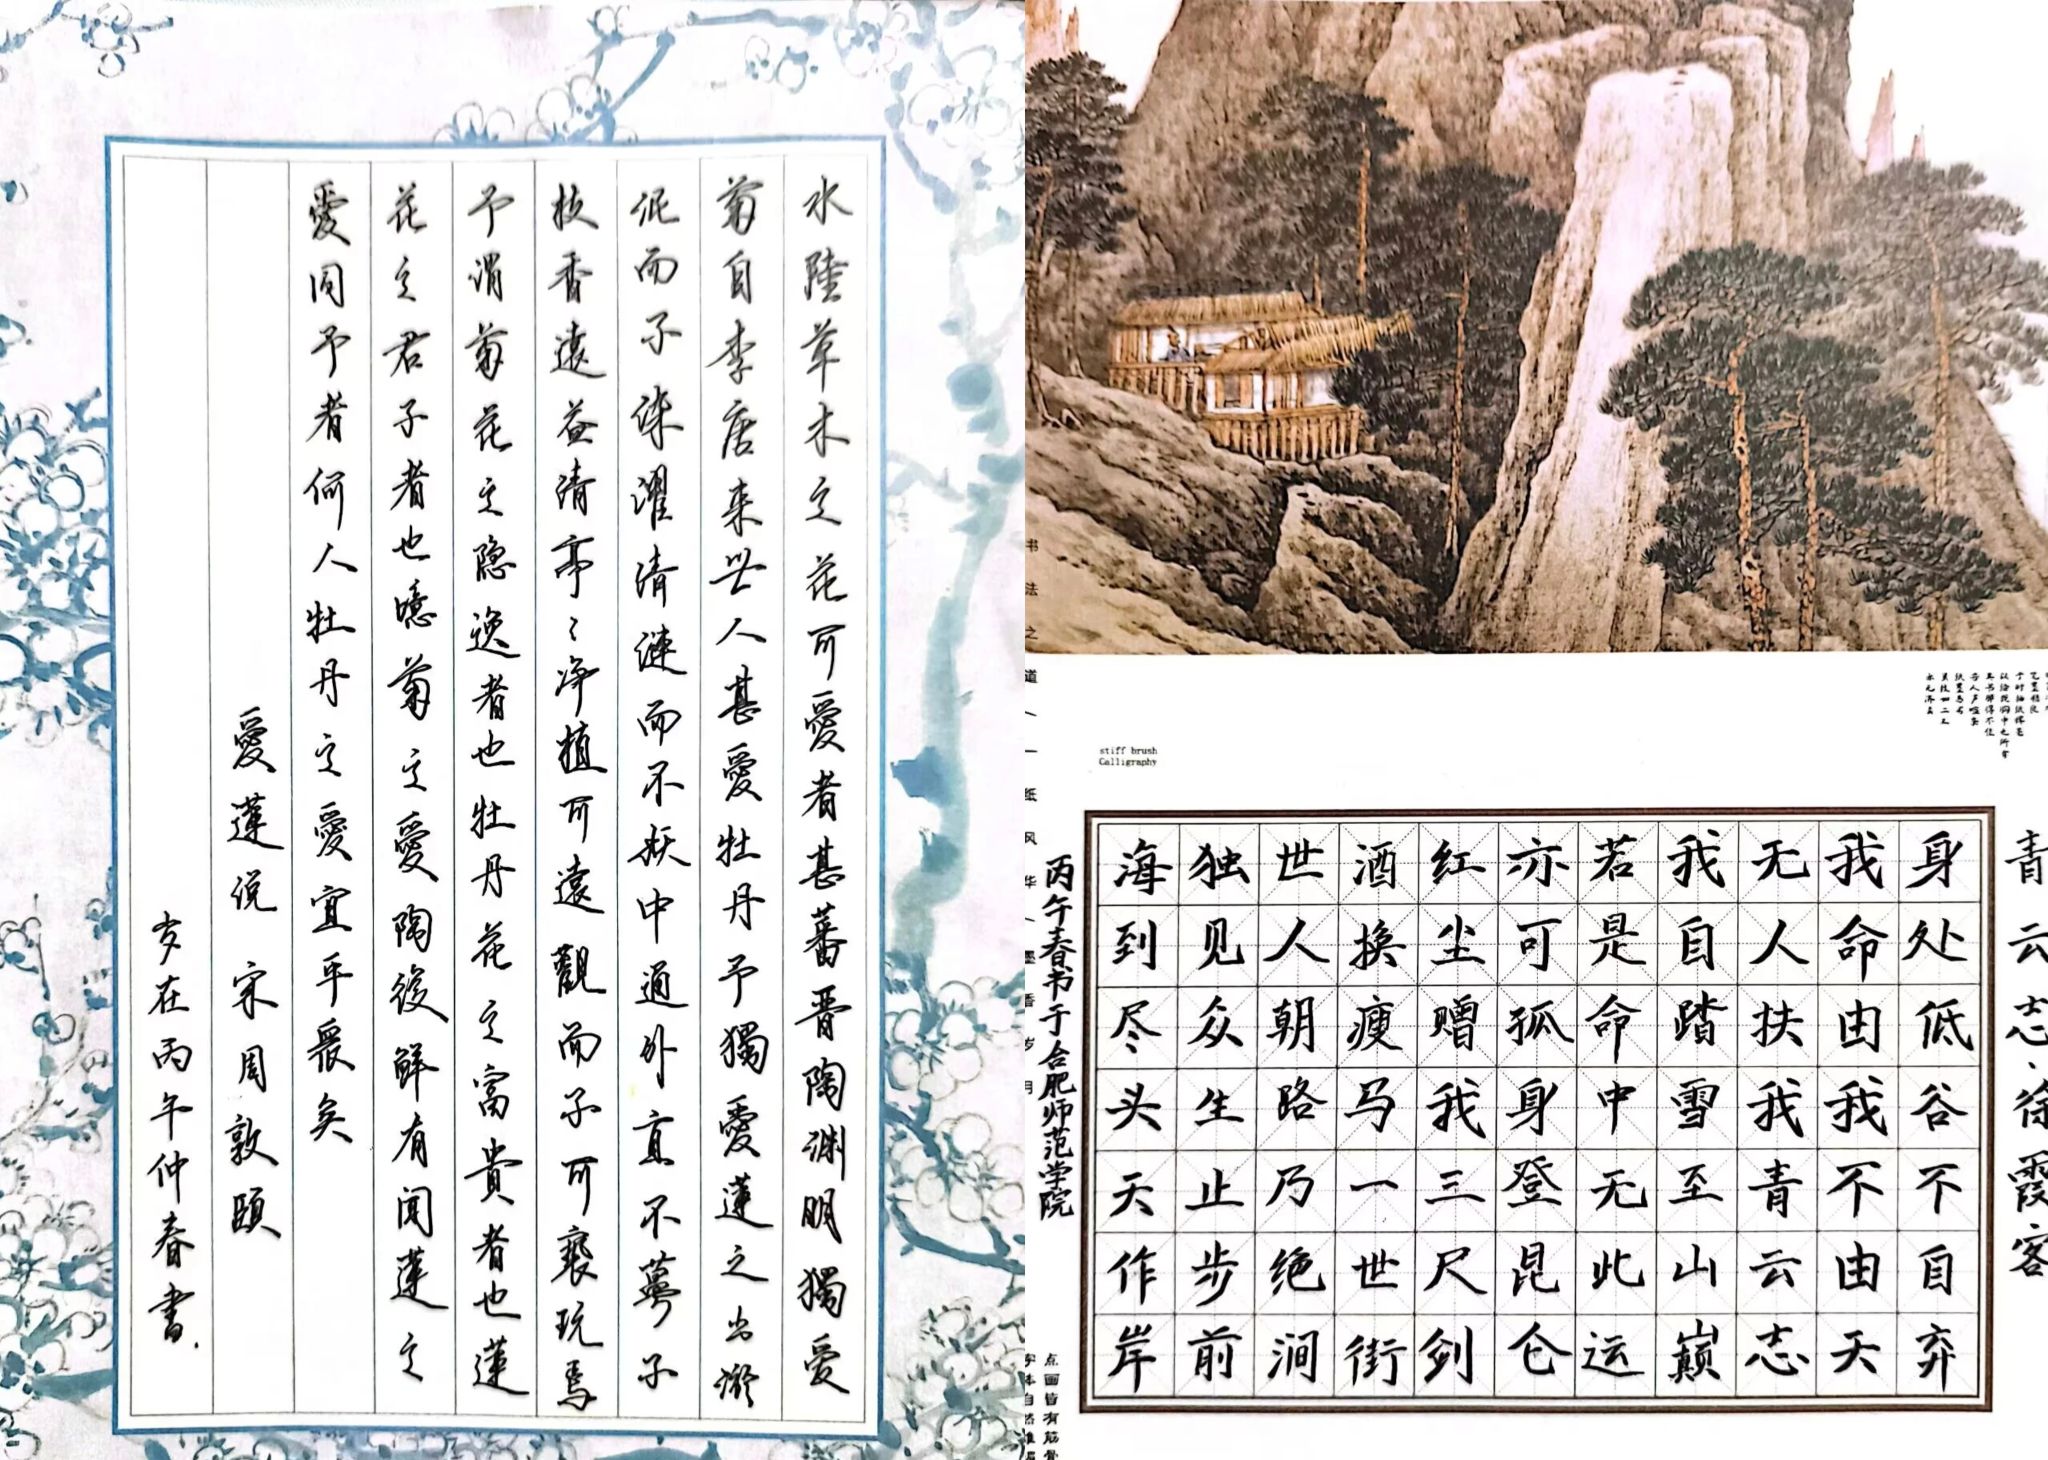 水陸草木之花可愛者甚蕃晋陶渊明獨愛
菊自李唐来世人甚愛牡丹予獨愛蓮之出淤
泥而不染濯清漣而不妖中通外直不蔓不
枝香遠益清亭〻净植可遠觀而不可褻玩焉
予谓菊花之隐逸者也牡丹花之富貴者也蓮
花之君子者也噫菊之愛陶後鮮有闻蓮之
愛同予者何人牡丹之愛宜乎衆矣
愛蓮说 宋 周敦頤
岁在丙午仲春書.
stiff brush
Calligraphy
青云志·徐霞客
身处低谷不自弃
我命由我不由天
无人扶我青云志
我自踏雪至山巅
若是命中无此运
亦可孤身登昆仑
红尘赠我三尺剑
酒换瘦马一世街
世人朝路乃绝涧
独见众生止步前
海到尽头天作岸
丙午春书于合肥师范学院
书法之道/一纸风华/墨香岁月
点画皆有筋骨
字体自然雄